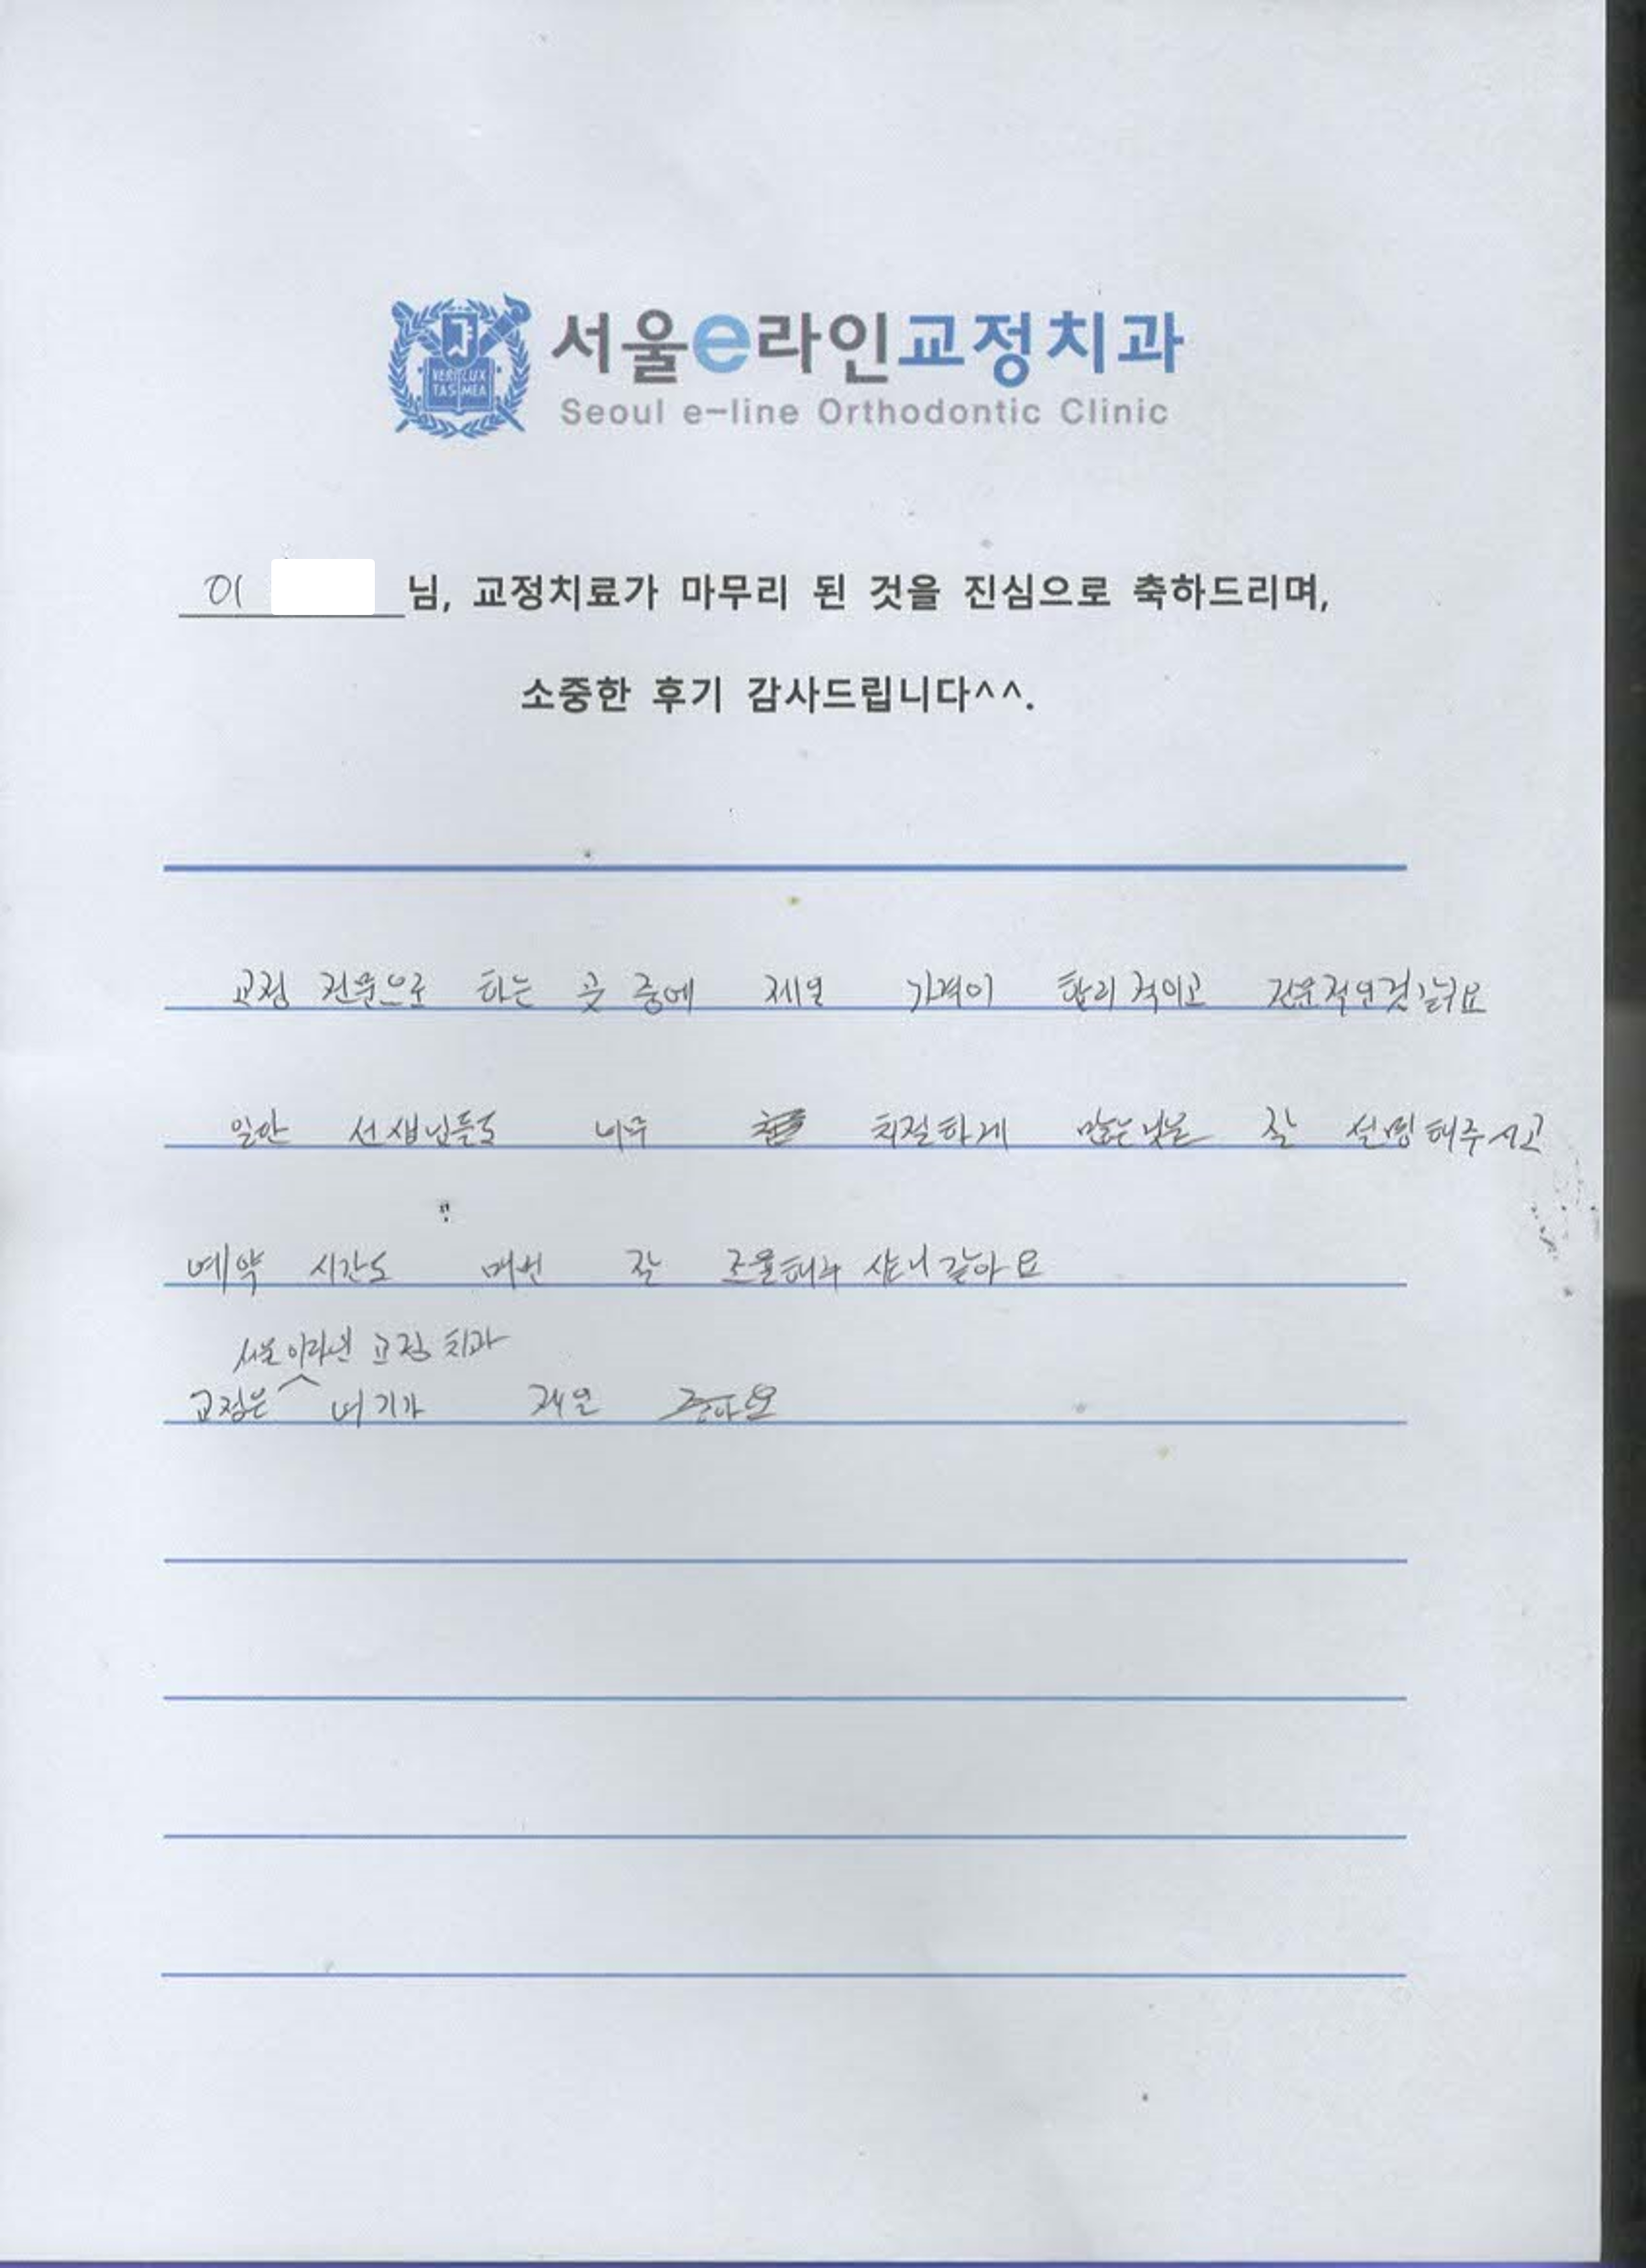 서울e라인교정치과
Seoul e-line Orthodontic Clinic
이 님, 교정치료가 마무리 된 것을 진심으로 축하드리며,
소중한 후기 감사드립니다^^.
교정 전문으로 하는 곳 중에 제일 가격이 합리적이고 전문적인것
선생님들도 너무 친절하게 잘 설명해주시고
예약 시간도 매번 잘 조율해주
서울이라인 교정 치과
교정은 여기가 제일 좋아요